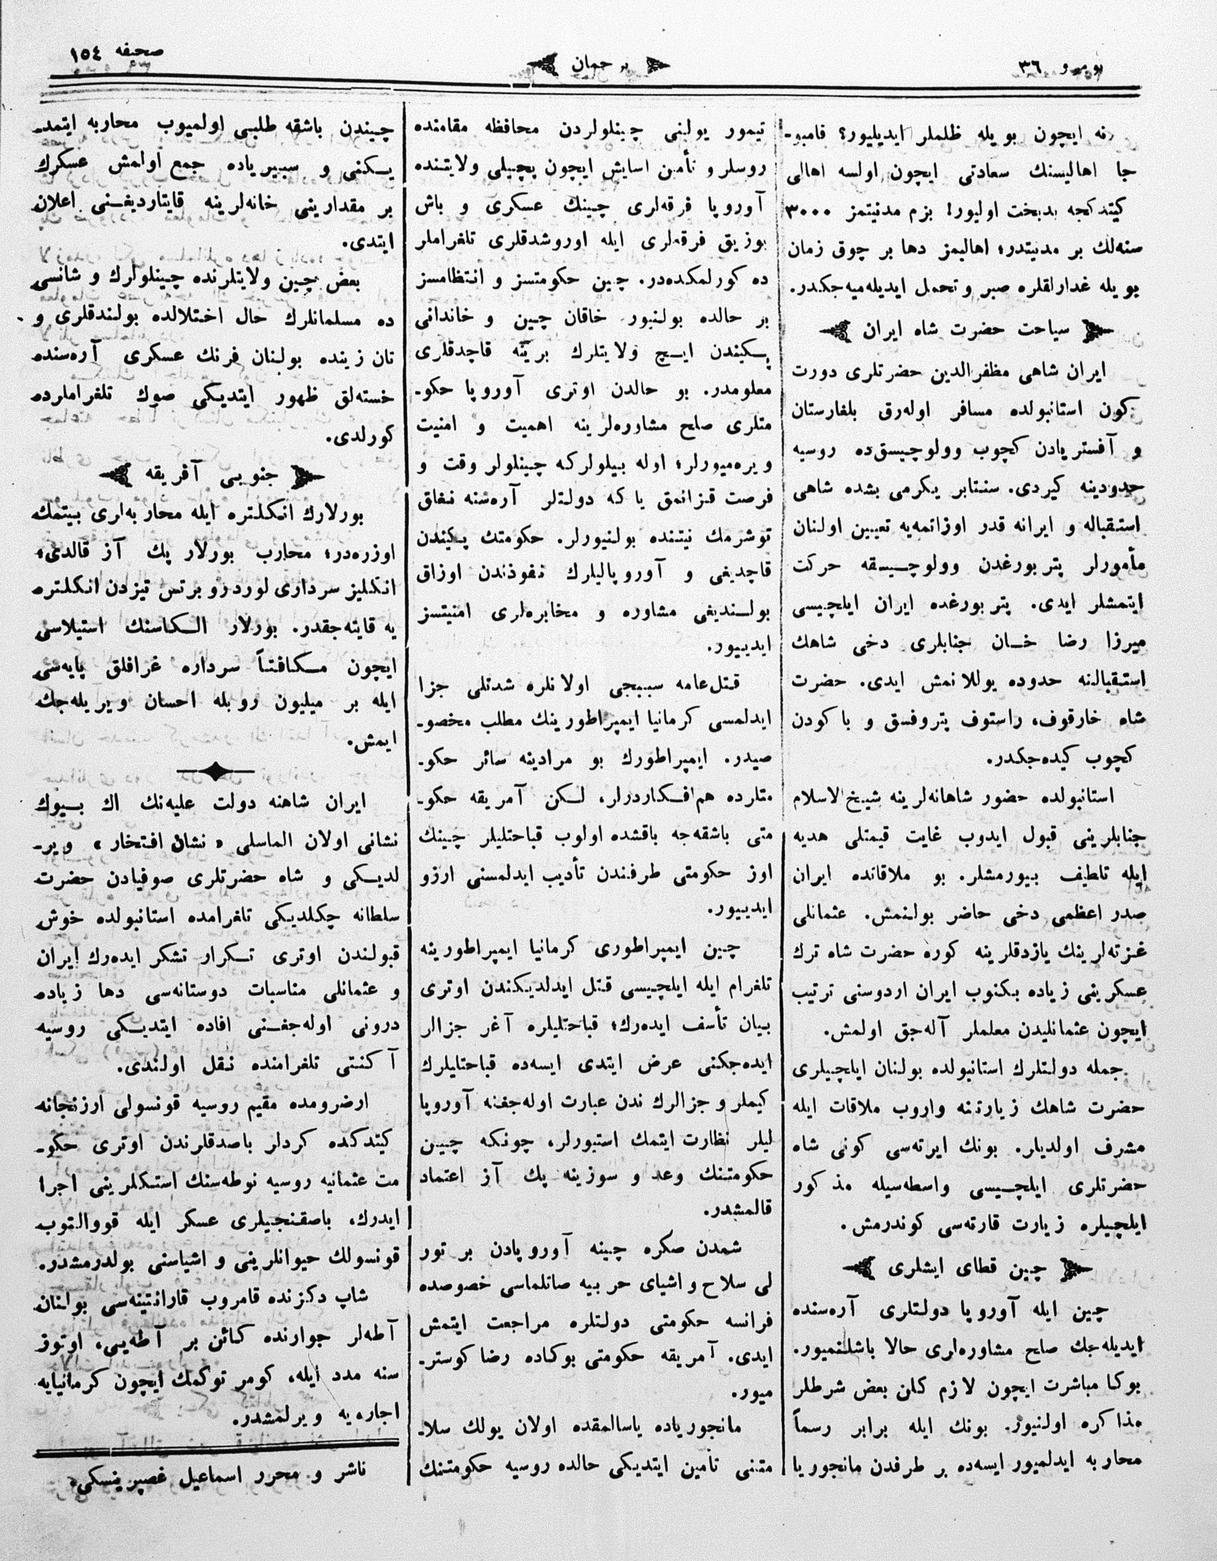 نومرو ٣٦
ترجمان
صحيفه ١٥٤
نه ايچون بويله ظلملر ايديليور؟ قامبو-
جا اهاليسنك سعادتى ايچون اولسه اهالى
كيتدكجه بدبخت اوليور! بزم مدنيتمز ٣٠٠٠
سنه‌لك بر مدنيتدر؛ اهاليمز دها بر چوق زمان
بويله غدارلقلره صبر و تحمل ايديله‌ميه‌جكدر.
سياحت حضرت شاه ايران
ايران شاهى مظفرالدين حضرتلرى دورت
كون استانبولده مسافر اوله‌رق بلغارستان
و آفسترياذن كچوب وولوچيسق‌ده روسيه
حدودينه كيردى. سنتابر يكرمى بشده شاهى
استقباله و ايرانه قدر اوزاتمه‌يه تعيين اولنان
مأمورلر پتربورغدن وولوچيسقه حركت
ايتمشلر ايدى. پتربورغده ايران ايلچيسى
ميرزا رضا خان جنابلرى دخى شاهك
استقبالنه حدوده يوللانمش ايدى. حضرت
شاه خارقوف، راستوف پتروفسق و باكودن
كچوب كيده‌جكدر.
استانبولده حضور شاهانه‌لرينه شيخ الاسلام
جنابلرينى قبول ايدوب غايت قيمتلى هديه
ايله تلطيف بيورمشلر. بو ملاقاتده ايران
صدر اعظمى دخى حاضر بولنمش. عثمانلى
غزته‌لرينك يازدقلرينه كوره حضرت شاه ترك
عسكرينى زياده بكنوب ايران اردوسنى ترتيب
ايچون عثمانليدن معلملر آله‌جق اولمش.
جمله دولتلرك استانبولده بولنان ايلچيلرى
حضرت شاهك زيارتنه واروب ملاقات ايله
مشرف اولديلر. بونك ايرته‌سى كونى شاه
حضرتلرى ايلچيسى واسطه‌سيله مذكور
ايلچيلره زيارت قارته‌سى كوندرمش.
چين قطاى ايشلرى
چين ايله آوروپا دولتلرى آره‌سنده
ايديله‌جك صلح مشاوره‌لرى حالا باشلنميور.
بوكا مباشرت ايچون لازم كلن بعض شرطلر
مذاكره اولنيور. بونك ايله برابر رسماً
محاربه ايدلميور ايسه‌ده بر طرفدن مانجوريا
تيمور يولنى چينلولردن محافظه مقامنده
روسلر و تأمين اسايش ايچون پچيلى ولايتنده
آوروپا فرقه‌لرى چينك عسكرى و باش
بوزيق فرقه‌لرى ايله اوروشدقلرى تلغراملر
ده كورلمكده‌در. چين حكومتسز و انتظامسز
بر حالده بولنيور. خاقان چين و خاندانى
پكيندن ايچ ولايتلرك برينه قاچدقلرى
معلومدر. بو حالدن اوترى آوروپا حكو-
متلرى صلح مشاوره‌لرينه اهميت و امنيت
ويره‌ميورلر؛ اوله بيلولركه چينلولر وقت و
فرصت قزانمق ياكه دولتلر آره‌شنه نفاق
توشرمك نيتنده بولنيورلر. حكومتك پكيندن
قاچديغى و آوروپاليلرك نفوذندن اوزاق
بولنديغى مشاوره و مخابره‌لرى امنيتسز
ايدييور.
قتل‌عامه سببجى اولانلره شدتلى جزا
ايدلمسى كرمانيا ايمپراطورينك مطلب مخصو-
صيدر. ايمپراطورك بو مرادينه سائر حكو-
متلرده هم‌افكاردرلر. لكن آمريقه حكو-
متى باشقه‌جه باقشده اولوب قباحتليلر چينك
اوز حكومتى طرفندن تأديب ايدلمسنى ارزو
ايدييور.
چين ايمپراطورى كرمانيا ايمپراطورينه
تلغرام ايله ايلچيسى قتل ايدلديكندن اوترى
بيان تأسف ايده‌رك؛ قباحتليلره آغر جزالر
ايده‌جكنى عرض ايتدى ايسه‌ده قباحتليلرك
كيملر و جزالرك ندن عبارت اوله‌جغنه آوروپا
ليلر نظارت ايتمك استيورلر، چونكه چين
حكومتنك وعد و سوزينه پك آز اعتماد
قالمشدر.
شمدن صكره چينه آوروپادن بر تور
لى سلاح و اشياى حربيه صاتلماسى خصوصده
فرانسه حكومتى دولتلره مراجعت ايتمش
ايدى. آمريقه حكومتى بوكاده رضا كوستر-
ميور.
مانجورياده ياسالمقده اولان يولك سلا-
متنى تأمين ايتديكى حالده روسيه حكومتنك
چيندن باشقه طلبى اولميوب محاربه ايتمد-
يكنى و سيبرياده جمع اولمش عسكرك
بر مقدارينى خانه‌لرينه قايتارديغنى اعلان
ايتدى.
بعض چين ولايتلرنده چينلولرك و شانسى
ده مسلمانلرك حال اختلالده بولندقلرى و
تان زينده بولنان فرنك عسكرى آره‌سنده
خسته‌لق ظهور ايتديكى صوك تلغراملرده
كورلدى.
جنوبى آفريقه
بورلارك انكلتره ايله محاربه‌لرى بيتمك
اوزره‌در؛ محارب بورلار پك آز قالدى؛
انكليز سردارى لورد روبرتس تيزدن انكلتره
يه قايته‌جقدر. بورلار الكاسنك استيلاسى
ايچون مكافتاً سرداره غرافلق پايه‌سى
ايله بر ميليون روبله احسان ويريله‌جك
ايمش.
ايران شاهنه دولت عليه‌نك اك بيوك
نشانى اولان الماسلى « نشان افتخار » وير-
لديكى و شاه حضرتلرى صوفيادن حضرت
سلطانه چكلديكى تلغرامده استانبولده خوش
قبولندن اوترى تكرار تشكر ايده‌رك ايران
و عثمانلى مناسبات دوستانه‌سى دها زياده
درونى اوله‌جغنى افاده ايتديكى روسيه
آكنتى تلغرامنده نقل اولندى.
ارضرومده مقيم روسيه قونسولى ارزنجانه
كيتدكده كردلر باصدقلرندن اوترى حكو-
مت عثمانيه روسيه نوطه‌سنك استكلرينى اجرا
ايدرك، باصقنجيلرى عسكر ايله قووالتوب
قونسولك حيوانلرينى و اشياسنى بولدرمشدر.
شاپ دكزنده قامروب قارانتينه‌سى بولنان
آطه‌لر جوارنده كائن بر آطه‌يى، اوتوز
سنه مدد ايله، كومر توكمك ايچون كرمانيايه
اجاره‌يه ويرلمشدر.
ناشر و محرر اسماعيل غصپرينسكى.